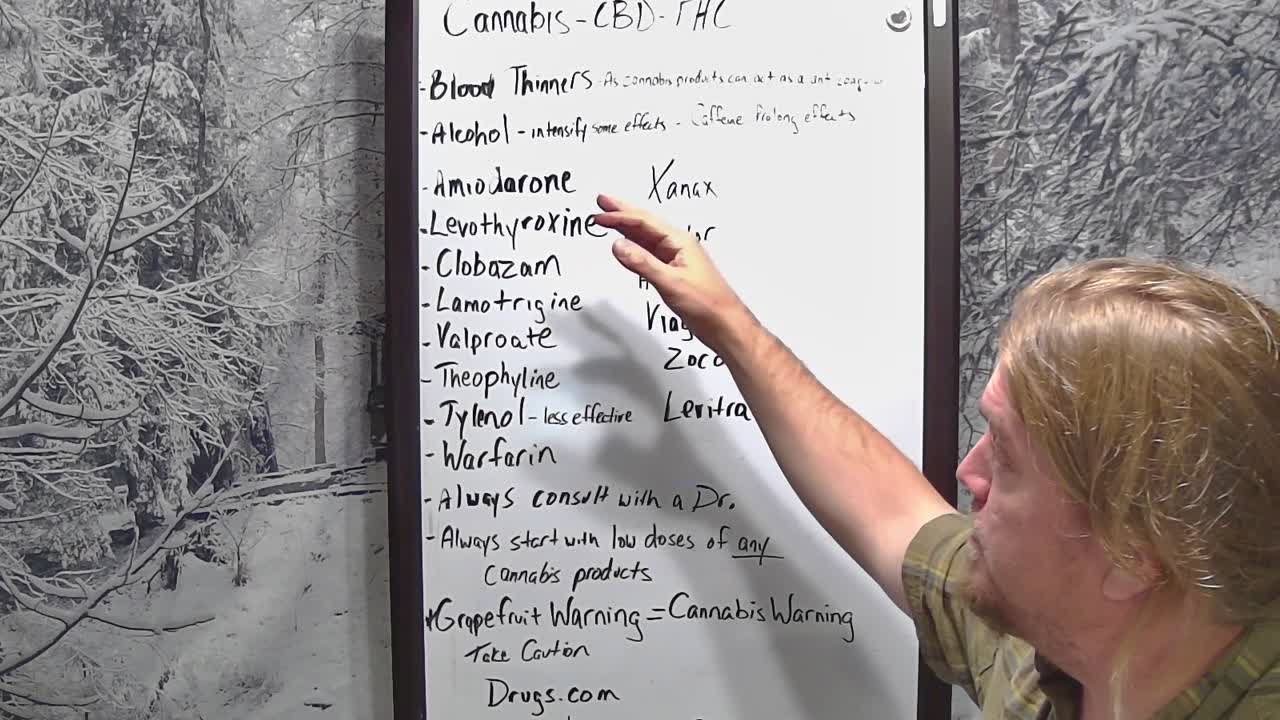 Cannabis - CBD - THC
- Blood Thinners - As cannabis products can act as a ant
- Alcohol - intensify some effects - Caffeine Prolong effects
- Amiodarone
Xanax
- Levothyroxine
- Clobazam
- Lamotrigine
- Valproate
Zoco
- Theophyline
- Tylenol - less effective
Levitra
- Warfarin
- Always consult with a Dr.
- Always start with low doses of any
Cannabis products
Grapefruit Warning = Cannabis Warning
Take Caution
Drugs.com